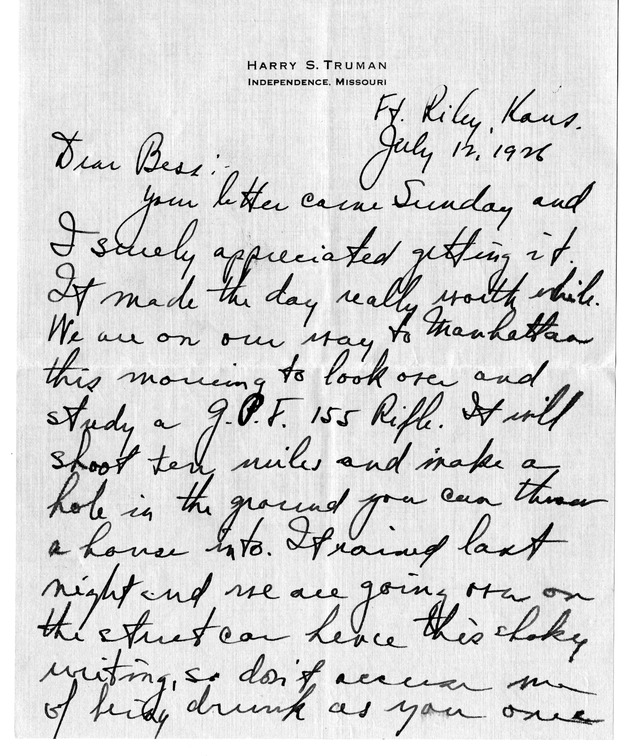 HARRY S. TRUMAN
INDEPENDENCE, MISSOURI
Ft. Riley, Kans.
July 12, 1926
Dear Bess:-
Your letter came Sunday and
I surely appreciated getting it.
It made the day really worth while.
We are on our way to Manhattan
this morning to look over and
study a G.P.F. 155 Rifle. It will
shoot ten miles and make a
hole in the ground you can throw
a house into. It rained last
night and we are going over on
the street car hence this shaky
writing, so don't accuse me
of being drunk as you once